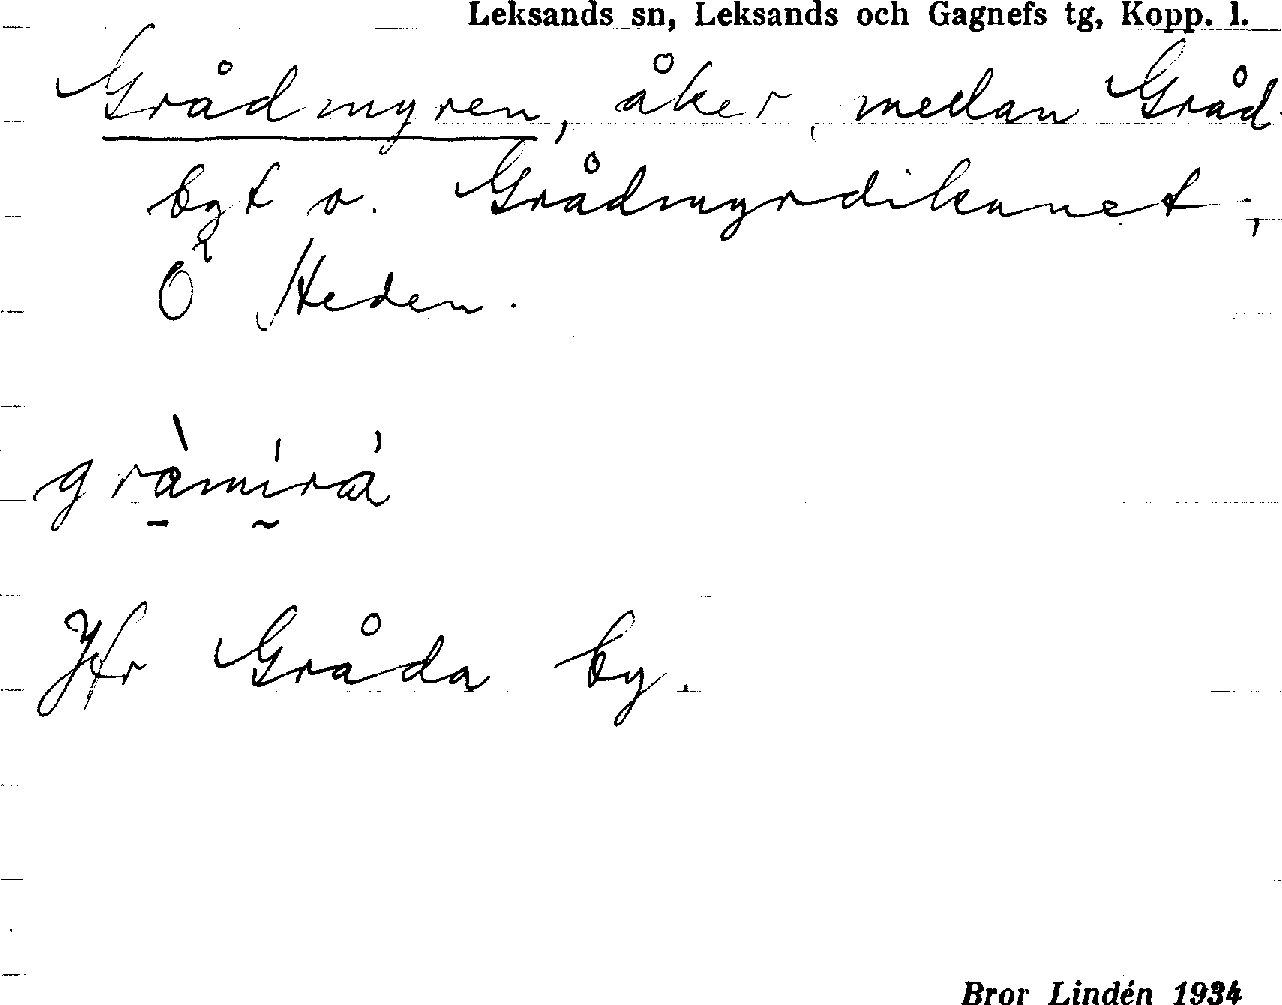 Leksands sn, Leksands och Gagnefs tg, Kopp. l.
Grådmyren, åker, medan Gråd-
bgt o. Grådmyrdikanet;
Ö Heden.
gràmírá
Jfr Gråda by.
Bror Lindén 1934